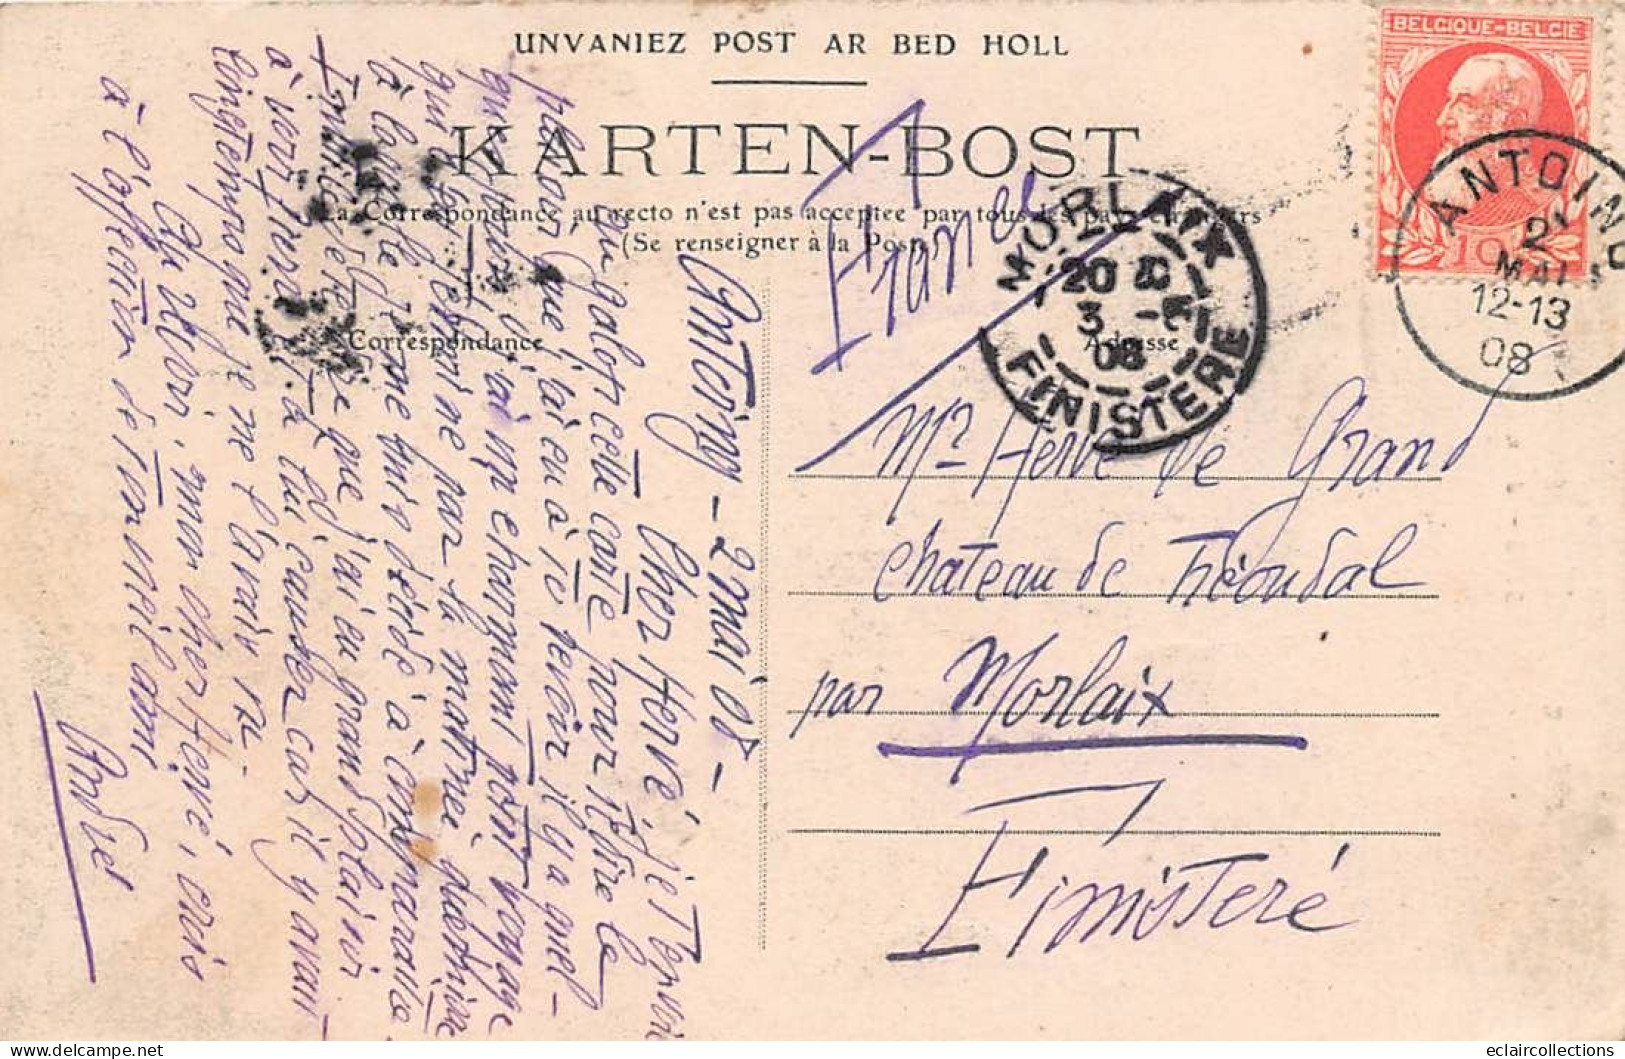 UNVANIEZ POST AR BED HOLL
KARTEN-BOST
La Correspondance au recto n'est pas acceptee par tous les pays etrangers
(Se renseigner à la Poste)
Correspondance
Adresse
BELGIQUE-BELGIE
10
ANTOING
2
MAI
12-13
08
MORLAIX
20
3 - 5
08
FINISTERE
France
Mr Hervé de Grand
chateau de Tréoudal
par Morlaix
Finistère
Antoing - 2 mai 08 -
Cher Hervé, je t'envoie
au galop cette carte pour te dire le
plaisir que j'ai eu à te revoir il y a quel-
ques jours. J'ai un charmant petit voyage
qui s'est terminé par la matinée
à laquelle je me suis décidé à
Emile de que j'ai eu grand plaisir
à voir sinon à lui causer car il y avait
longtemps que je ne l'avais vu -
Au revoir, mon cher Hervé, crois
à l'affection de ton vieil ami
André
eclaircollections